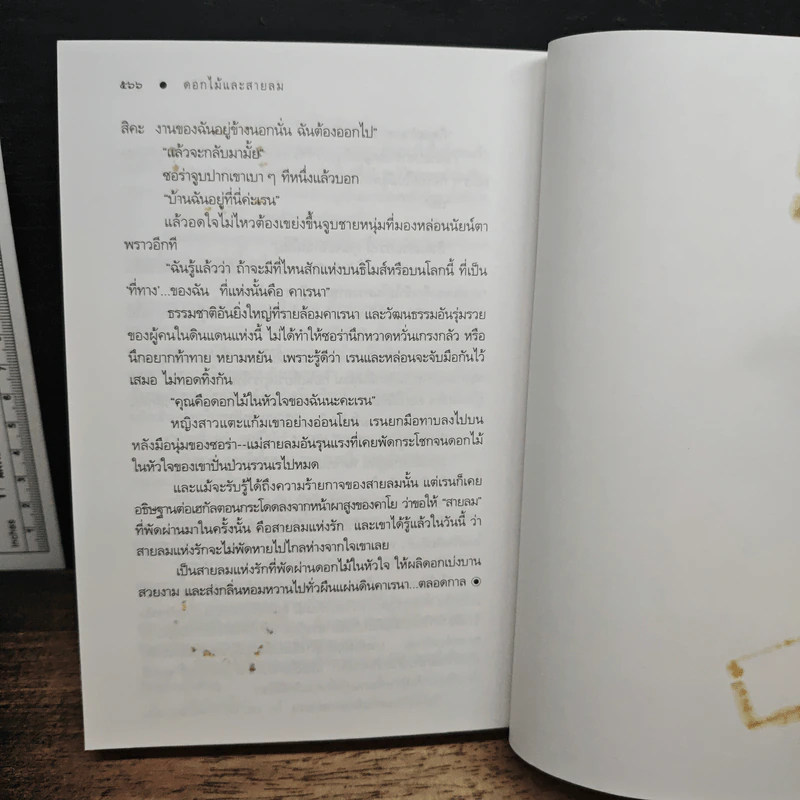 ๕๖๖ ● ดอกไม้และสายลม
สิคะ งานของฉันอยู่ข้างนอกนั่น ฉันต้องออกไป"
"แล้วจะกลับมามั้ย"
ซอร่าจูบปากเขาเบา ๆ ทีหนึ่งแล้วบอก
"บ้านฉันอยู่ที่นี่ค่ะเรน"
แล้วอดใจไม่ไหวต้องเขย่งขึ้นจูบชายหนุ่มที่มองหล่อนนัยน์ตา
พราวอีกที
"ฉันรู้แล้วว่า ถ้าจะมีที่ไหนสักแห่งบนธิโมส์หรือบนโลกนี้ ที่เป็น
'ที่ทาง'...ของฉัน ที่แห่งนั้นคือ คาเรนา"
ธรรมชาติอันยิ่งใหญ่ที่รายล้อมคาเรนา และวัฒนธรรมอันรุ่มรวย
ของผู้คนในดินแดนแห่งนี้ ไม่ได้ทำให้ซอร่านึกหวาดหวั่นเกรงกลัว หรือ
นึกอยากท้าทาย หยามหยัน เพราะรู้ดีว่า เรนและหล่อนจะจับมือกันไว้
เสมอ ไม่ทอดทิ้งกัน
"คุณคือดอกไม้ในหัวใจของฉันนะคะเรน"
หญิงสาวแตะแก้มเขาอย่างอ่อนโยน เรนยกมือทาบลงไปบน
หลังมือนุ่มของซอร่า--แม่สายลมอันรุนแรงที่เคยพัดกระโชกจนดอกไม้
ในหัวใจของเขาปั่นป่วนรวนเรไปหมด
และแม้จะรับรู้ได้ถึงความร้ายกาจของสายลมนั้น แต่เรนก็เคย
อธิษฐานต่อเฮกัลตอนกระโดดลงจากหน้าผาสูงของคาโย ว่าขอให้ "สายลม"
ที่พัดผ่านมาในครั้งนั้น คือสายลมแห่งรัก และเขาได้รู้แล้วในวันนี้ ว่า
สายลมแห่งรักจะไม่พัดหายไปไกลห่างจากใจเขาเลย
เป็นสายลมแห่งรักที่พัดผ่านดอกไม้ในหัวใจ ให้ผลิดอกเบ่งบาน
สวยงาม และส่งกลิ่นหอมหวานไปทั่วผืนแผ่นดินคาเรนา...ตลอดกาล
inches